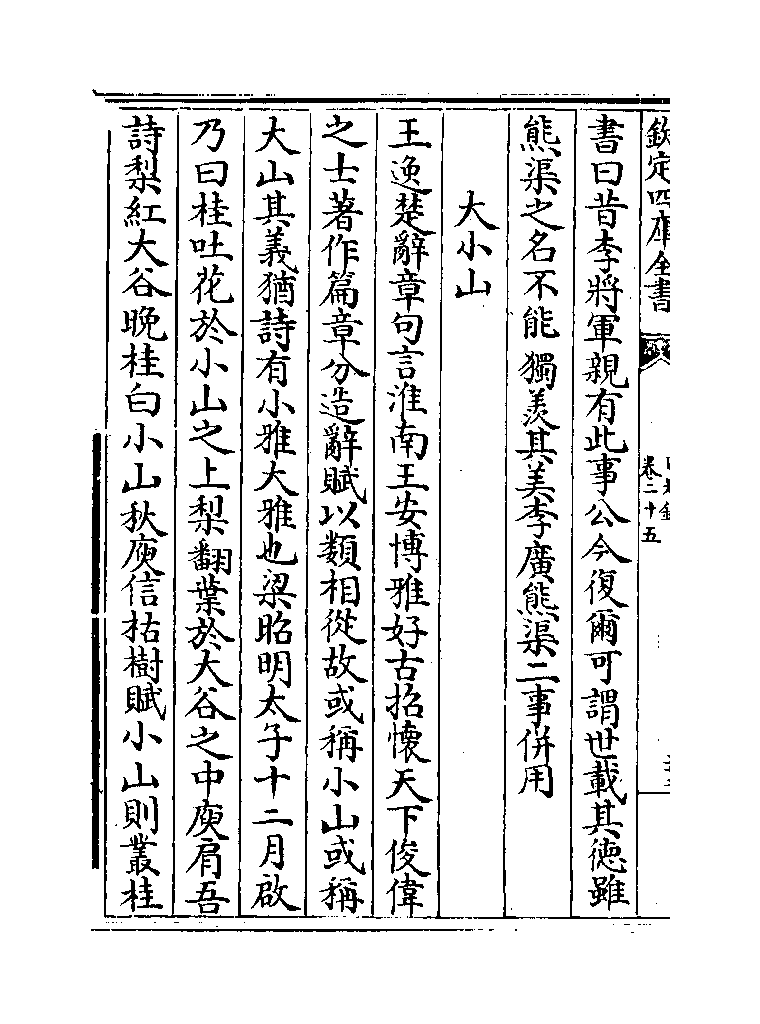 欽定四庫全書
卷二十五
書曰昔李將軍親有此事公今復爾可謂世載其徳雖
熊渠之名不能獨羨其美李廣熊渠二事併用
大小山
王逸楚辭章句言淮南王安博雅好古招懷天下俊偉
之士著作篇章分造辭賦以類相從故或稱小山或稱
大山其義猶詩有小雅大雅也梁昭明太子十二月啟
乃曰桂吐花於小山之上梨翻葉於大谷之中庾肩吾
詩梨紅大谷晚桂白小山秋庾信枯樹賦小山則叢桂